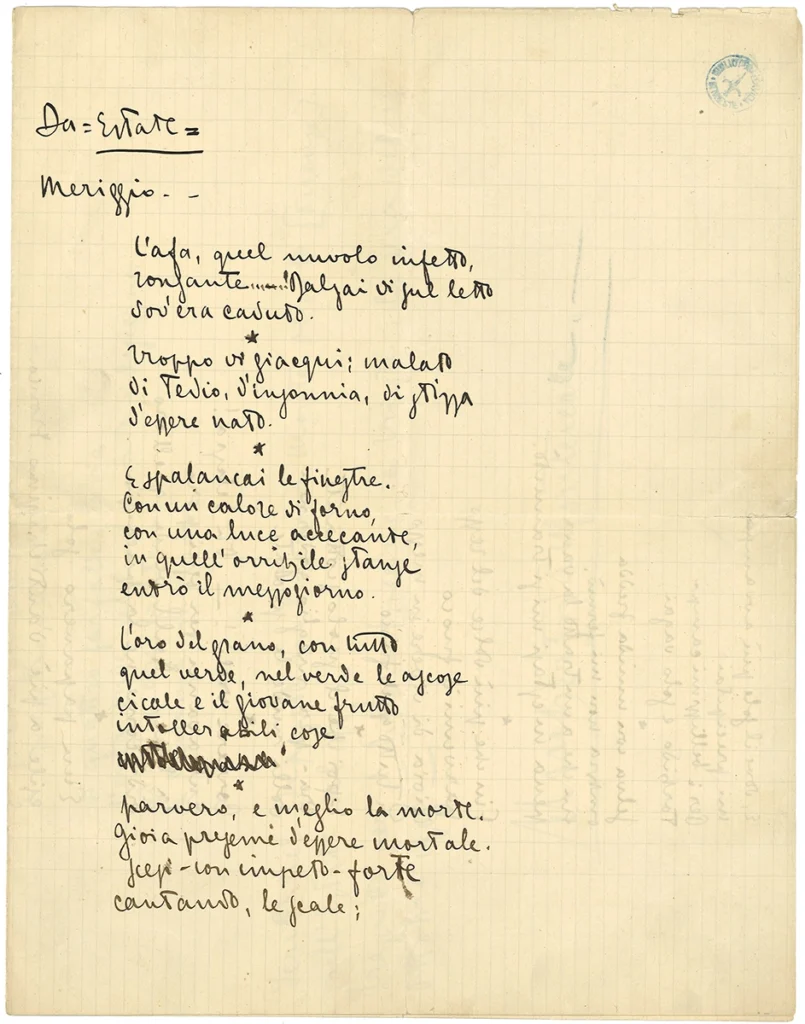 Da = Estate =
Meriggio. -
L'afa, quel nuvolo infetto,
ronzante.......! Balzai di sul letto
dov'era caduto.
*
Troppo vi giacqui; malato
di tedio, d'insonnia, di stizza
d'essere nato.
*
E spalancai le finestre.
Con un calore di forno,
con una luce accecante,
in quell'orribile stanze
entrò il mezzogiorno.
*
L'oro del grano, con tutto
quel verde, nel verde le ascose
cicale e il giovane frutto
intollerabili cose
*
parvero, e meglio la morte.
Gioia presemi d'essere mortale.
Scesi - con impeto - forte
cantando, le scale;